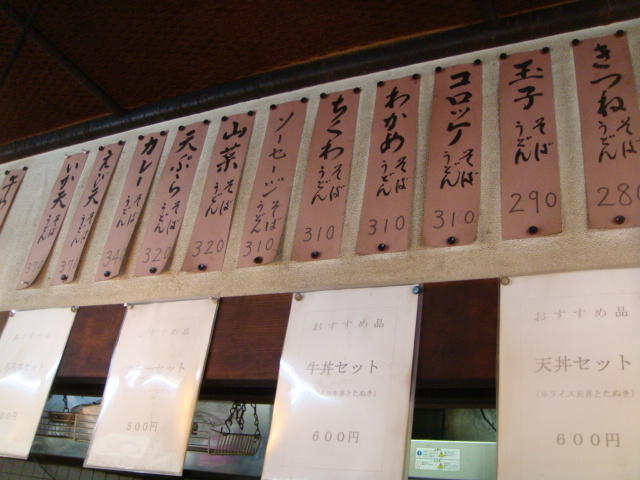 きつね そば うどん 280
玉子 そば うどん 290
コロッケ そば うどん 310
わかめ そば うどん 310
ちくわ そば うどん 310
ソーセージ そば うどん 310
山菜 そば うどん 320
天ぷら そば うどん 320
カレー そば うどん 340
えび天 そば うどん 37
いか天 そば うどん 37
おすすめ品
天丼セット
(ライス天丼とたぬき)
600円
おすすめ品
牛丼セット
牛丼とたぬき)
600円
おすすめ品
ーセット
500円
おすすめ品
丼セット
00円